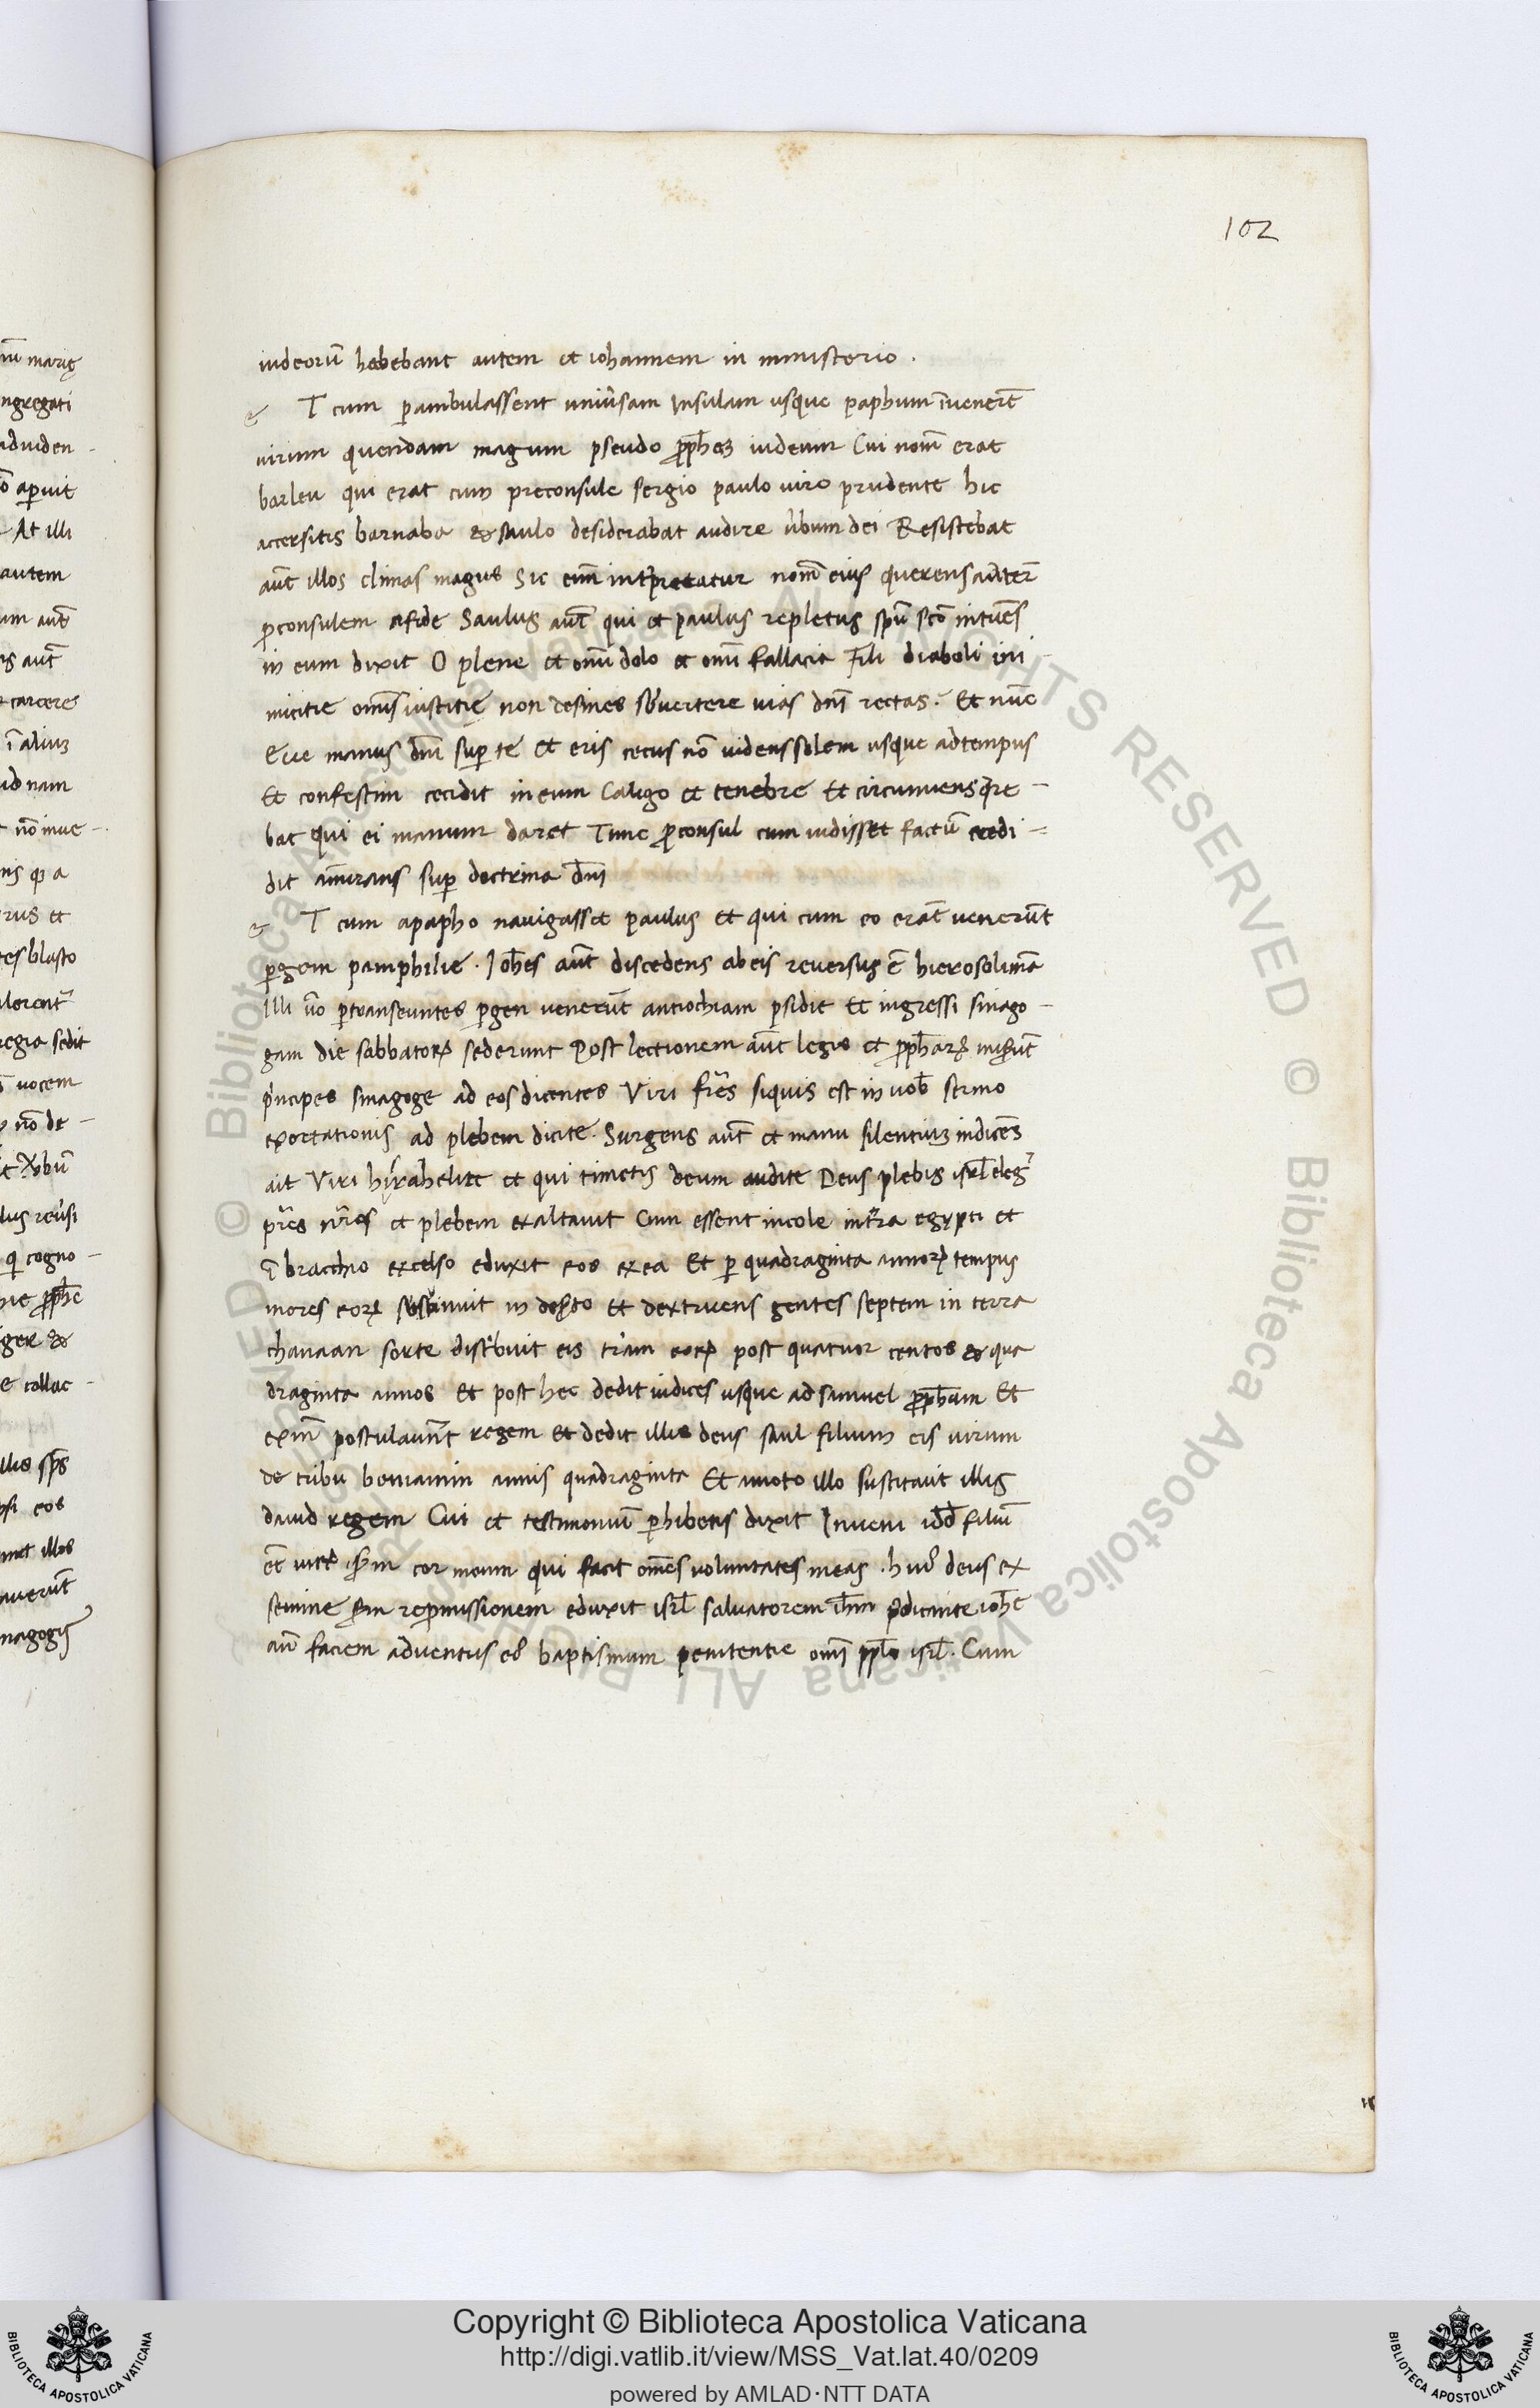 102
iudeorū habebant autem et iohannem in ministerio .
& T cum ꝑambulassent uniũsam Insulam usque paphum īvenert̄
virum quendam magum pseudo ꝓph̄aꝫ iudeum Cui nom̄ erat
barieu qui erat cum preconsule sergio paulo viro prudente hic
accersitis barnaba & saulo desiderabat audire v̄bum dei Resistebat
aut̄ illos elimas magus Sic eni᷒m int̄p̄retatur nom̄ eius querens av̄ter̄
ꝓconsulem afide Saulus aut̄ qui et paulus repletus spū scō intuēs
in eum dixit O plene et om̄i dolo et om̄i fallacia Fili diaboli ini
micitie om̄is iustitie non desines sb̄vertere vias dn̄i rectas. Et nūc
Ecce manus dn̄i suꝑ te Et eris cecus nō videns solem usque adtempus
Et confestim cecidit ineum Caligo et tenebre Et circumiens q̄re -
bat qui ei manum daret Tunc ꝓconsul cum vidisset factū credi =
dit am̄irans suꝑ doctrina dn̄i
& T cum apapho navigasset paulus et qui cum eo erāt venerūt
ꝑgem pamphilie . Ioh̄es aut̄ discedens abeis reversus ē hierosolimā
Illi v̄o ꝑtranseuntes ꝑgen venerūt antiochiam ꝑsidie Et ingressi sinago -
gam die sabbatoꝝ sederunt Post lectionem aut̄ legis et ꝓph̄aꝝ miser̄ūt
p̄ncipes sinagoge ad eos dicentes Viri fr̄es siquis est in vob̄ sermo
exortationis ad plebem dicite. Surgens aut̄ et manu silentiuꝫ indicēs
ait Viri hisrahelite et qui timetis deum audite Deus plebis isrl̄ eleḡ
pr̄es nr̄os et plebem exaltavit Cum essent incole in t̄ra egypti et
ī bracchio excelso eduxit eos exea Et ꝑ quadraginta annoꝝ tempus
mores eoꝝ sustinuit in desr̄to Et dextruens gentes septem in terra
chanaan sorte distribuit eis tr̄am eoꝝ post quatuor centos & qua
draginta annos Et post hec dedit iudices usque ad samuel ꝓph̄am Et
exin̄ postulaver̄nt regem Et dedit illis deus saul filium cis virum
de tribu beniamin annis quadraginta Et amoto illo suscitavit illis
david regem Cui et testimoniū ꝑhibens dixit Inveni dd̄ filiū
virū scd̄m cor meum qui facit om̄es voluntates meas . hui᷒ deus ex
semine scd̄m repromissionem eduxit isrl̄ salvatorem ih̄m p̄dicante ioh̄e
an̄ faciem adventus ei᷒ baptismum penitentie om̄i ppl̄o isrl̄. Cum
Copyright © Biblioteca Apostolica Vaticana
http://digi.vatlib.it/view/MSS_Vat.lat.40/0209
powered by AMLAD·NTT DATA